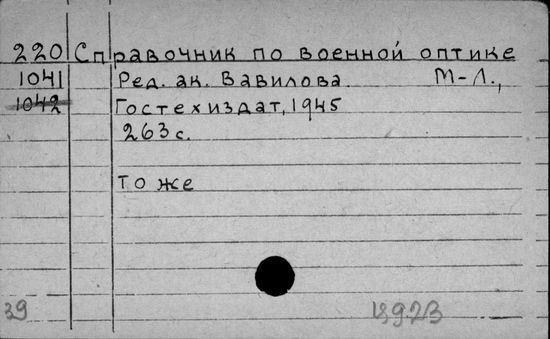 220 Справочник по военной оптике
1041 Ред. ак. Вавилова. М-Л.,
1042 Гостехиздат, 1945
263 с.
То же
39